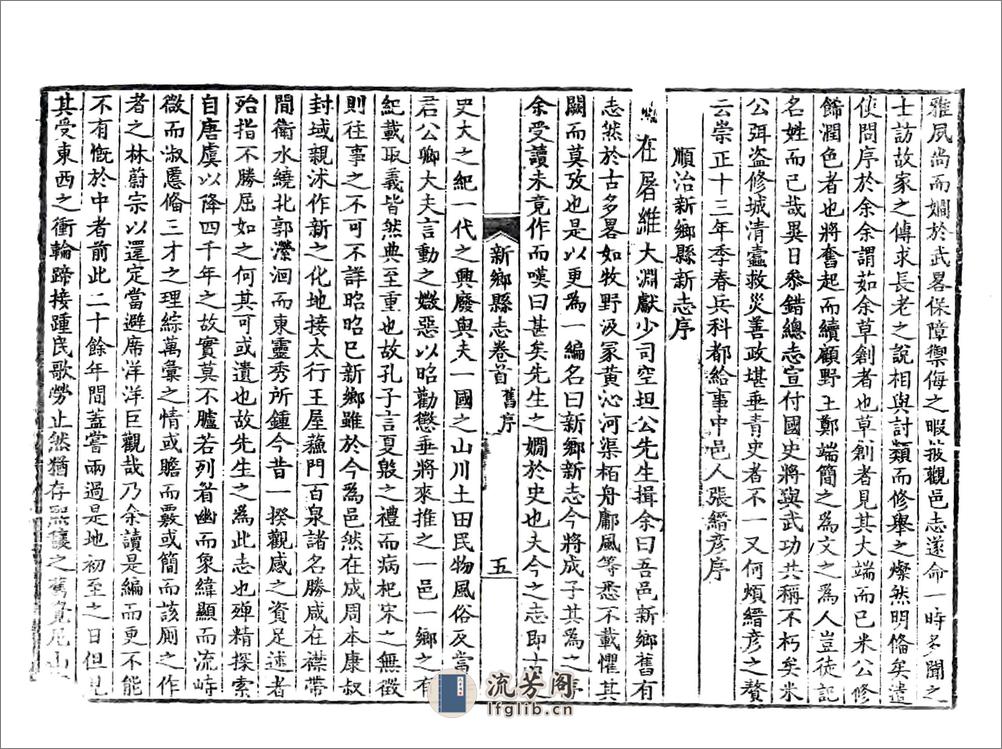 雅夙尚而嫻於武畧保障禦侮之暇披觀邑志遂命一時多聞之
士訪故家之傳求長老之說相與討類而修舉之燦然明備矣遣
使問序於余余謂茹余草創者也草創者見其大端而已米公修
飾潤色者也將奮起而續顧野王鄭端簡之為文之為人豈徒記
名姓而已哉異日叅錯總志宣付國史將與武功共稱不朽矣米
公弭盗修城清蠹救災善政堪垂青史者不一又何煩縉彥之贅
云崇正十三年季春兵科都給事中邑人張縉彥序
順治新鄉縣新志序
在屠維大淵獻少司空坦公先生揖余曰吾邑新鄉舊有
志然於古多畧如牧野汲冢黄沁河渠栢舟鄘風等悉不載懼其
闕而莫攷也是以更為一編名曰新鄉新志今將成子其為之序
余受讀未竟作而嘆曰甚矣先生之嫻於史也夫今之志即古
新鄉縣志卷首 舊序 五
史大之紀一代之興廢與夫一國之山川土田民物風俗及當
君公卿大夫言動之媺惡以昭勸懲垂將來推之一邑一鄉之有
紀載取義皆然典至重也故孔子言夏殷之禮而病杞宋之無徵
則往事之不可不詳昭昭已新鄉雖於今為邑然在成周本康叔
封域親沭作新之化地接太行王屋蘓門百泉諸名勝咸在襟帶
間衛水繞北郭瀠洄而東靈秀所鍾今昔一揆觀感之資足述者
殆指不勝屈如之何其可或遺也故先生之為此志也殫精探索
自唐虞以降四千年之故實莫不臚若列眉幽而象緯顯而流峙
微而淑慝脩三才之理綜萬彙之情或贍而覈或簡而該厠之作
者之林蔚宗以還定當避席洋洋巨觀哉乃余讀是編而更不能
不有慨於中者前此二十餘年間蓋嘗兩過是地初至之日但見
其受東西之衝輪蹄接踵民歌勞止然猶存熙穰之
流芳阁
lfglib.cn